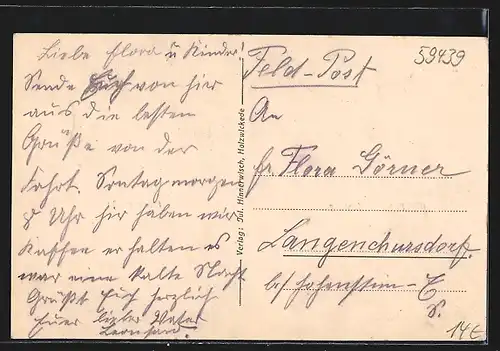 Liebe Flora u Kinder!
Sende Euch von hier
aus die besten
Grüße von der
Fahrt. Sontag morgen
8 Uhr hir haben wir
Kaffee erhalten es
war eine kalte Nacht
Grüßt Euch herzlich
Euer Vater
Leonhard.
Verlag: Jul. Hinnerwisch, Holzwickede
59439
Feld-Post
An
fr Flora Görner
Langenchursdorf.
b/ Hohenstein-E
S.
14€